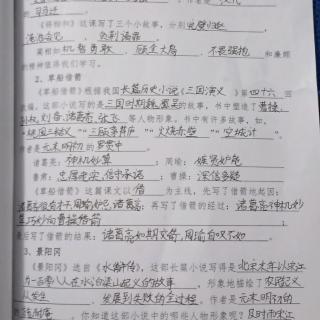 的 司马迁 。
《将相和》这课写了三个小故事，分别 完璧归赵 、
渑池会见 、 负荆请罪 。
蔺相如 机智勇敢 、 顾全大局 、 不畏强抱 和廉颇
的精神值得我们学习。
2. 草船借箭
《草船借箭》根据我国 长篇历史小说《三国演义》第 四十六 回
改编。这部小说写的是三国时期魏、蜀、吴的故事，书中塑造了 曹操、
刘备、诸葛亮、张飞 等人物形象。书中有许多故事，如，
“桃园三结义”“三顾茅芦”“火烧赤壁”“空城计”。
作者是 元末明初 的 罗贯中 。
诸葛亮： 神机妙算 周瑜： 嫉贤妒能
鲁肃： 忠厚老实、信守承诺 曹操： 深信多疑
《草船借箭》这篇课文以 借 为主线，先写了借箭地起因：
再写了借箭的经过： 诸葛亮神机妙
算巧妙向曹操借箭
最后写了借箭的结果： 诸葛亮如期交箭，周瑜自叹不如
3. 景阳冈
《景阳冈》选自《 水浒传 》，这部长篇小说写得是 北宋末年以宋江
为一百零八人在水泊梁山起义的故事 ，形象地描绘了 农民起义
从发生 、 发展到失败的全过程 。作者是 元末明初 的
施耐庵 。你知道这部小说中的哪些人物形象呢？ 及时雨宋江